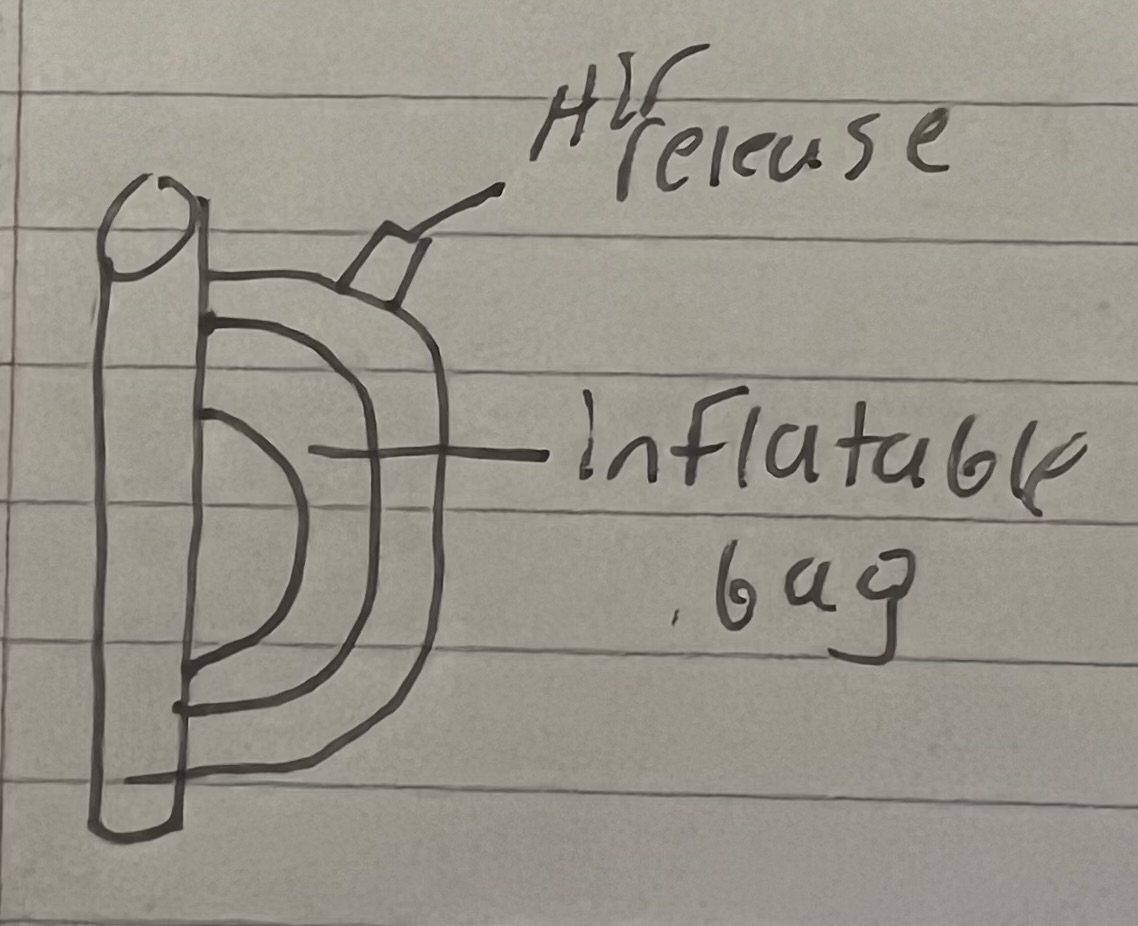 Air
release
Inflatable
bag